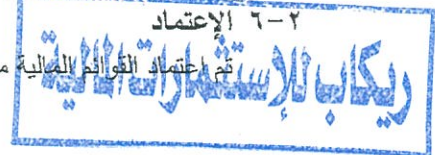 ٢-٦ الإعتماد
تم إعتماد القوائم المالية
ريكاب للإستثمارات المالية